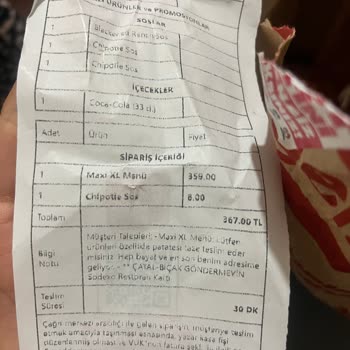 ÜRÜNLER ve PROMOSYONLAR
SOSLAR
1
1 Chipotle Sos
1 Chipotle Sos
İÇECEKLER
1 Coca-Cola (33 cl.)
Adet Ürün Fiyat
SİPARİŞ İÇERİĞİ
1 Maxi XL Menü 359.00
1 Chipotle Sos 8.00
Toplam 367.00 TL
Müşteri Talepleri: - Maxi XL Menü: Lütfen
ürünleri özellikle patatesi taze teslim eder
Bilgi misiniz Hep bayat ve en son benim adresime
Notu geliyor ** ÇATAL-BIÇAK GÖNDERMEYİN
Sadece Restoran Kartı
Teslim
Süresi 30 DK
Çağrı merkezi aracılığı ile gelen siparişin, müşteriye teslim
etmek amacıyla taşınması esnasında, yazar kasa fişi
düzenlenmiş olması ve VUK'nun